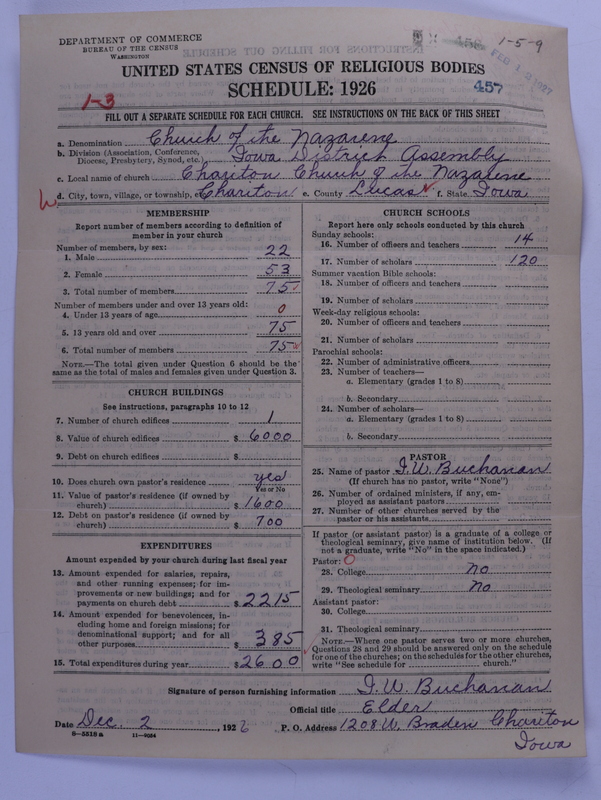 DEPARTMENT OF COMMERCE
BUREAU OF THE CENSUS
WASHINGTON
1-5-9
UNITED STATES CENSUS OF RELIGIOUS BODIES
SCHEDULE: 1926
457
1-3
FILL OUT A SEPARATE SCHEDULE FOR EACH CHURCH. SEE INSTRUCTIONS ON THE BACK OF THIS SHEET
a. Denomination Church of the Nazarene
b. Division (Association, Conference, Diocese, Presbytery, Synod, etc. Iowa District Assembly
c. Local name of church Chariton Church of the Nazarene
d. City, town, village, or township, Chariton e. County Lucas f. State Iowa
MEMBERSHIP
Report number of members according to definition of
member in your church
Number of members, by sex:
1. Male 22
2. Female 53
3. Total number of members 75
Number of members under and over 13 years old:
4. Under 13 years of age 0
5. 13 years old and over 75
6. Total number of members 75
NOTE.—The total given under Question 6 should be the
same as the total of males and females given under Question 3.
CHURCH BUILDINGS
See instructions, paragraphs 10 to 12
7. Number of church edifices 1
8. Value of church edifices $ 6000
9. Debt on church edifices $
10. Does church own pastor's residence yes
Yes or No
11. Value of pastor's residence (if owned by
church) $ 1600
12. Debt on pastor's residence (if owned by
church) $ 700
EXPENDITURES
Amount expended by your church during last fiscal year
13. Amount expended for salaries, repairs,
and other running expenses; for im-
provements or new buildings; and for
payments on church debt $ 2215
14. Amount expended for benevolences, in-
cluding home and foreign missions; for
denominational support; and for all
other purposes $ 385
15. Total expenditures during year $ 2600
CHURCH SCHOOLS
Report here only schools conducted by this church
Sunday schools:
16. Number of officers and teachers 14
17. Number of scholars 120
Summer vacation Bible schools:
18. Number of officers and teachers
19. Number of scholars
Week-day religious schools:
20. Number of officers and teachers
21. Number of scholars
Parochial schools:
22. Number of administrative officers
23. Number of teachers—
a. Elementary (grades 1 to 8)
b. Secondary
24. Number of scholars—
a. Elementary (grades 1 to 8)
b. Secondary
PASTOR
25. Name of pastor I. W. Buchanan
(If church has no pastor, write "None")
26. Number of ordained ministers, if any, em-
ployed as assistant pastors
27. Number of other churches served by the
pastor or his assistants
If pastor (or assistant pastor) is a graduate of a college or
theological seminary, give name of institution below. (If
not a graduate, write "No" in the space indicated.)
Pastor:
28. College no
29. Theological seminary no
Assistant pastor:
30. College
31. Theological seminary
NOTE.—Where one pastor serves two or more churches,
Questions 28 and 29 should be answered only on the schedule
for one of the churches; on the schedules for the other churches,
write "See schedule for church."
Signature of person furnishing information I. W. Buchanan
Official title Elder
Date Dec. 2, 1926 P. O. Address 1208 W. Braden Chariton
Iowa
6-5518a 11-9034